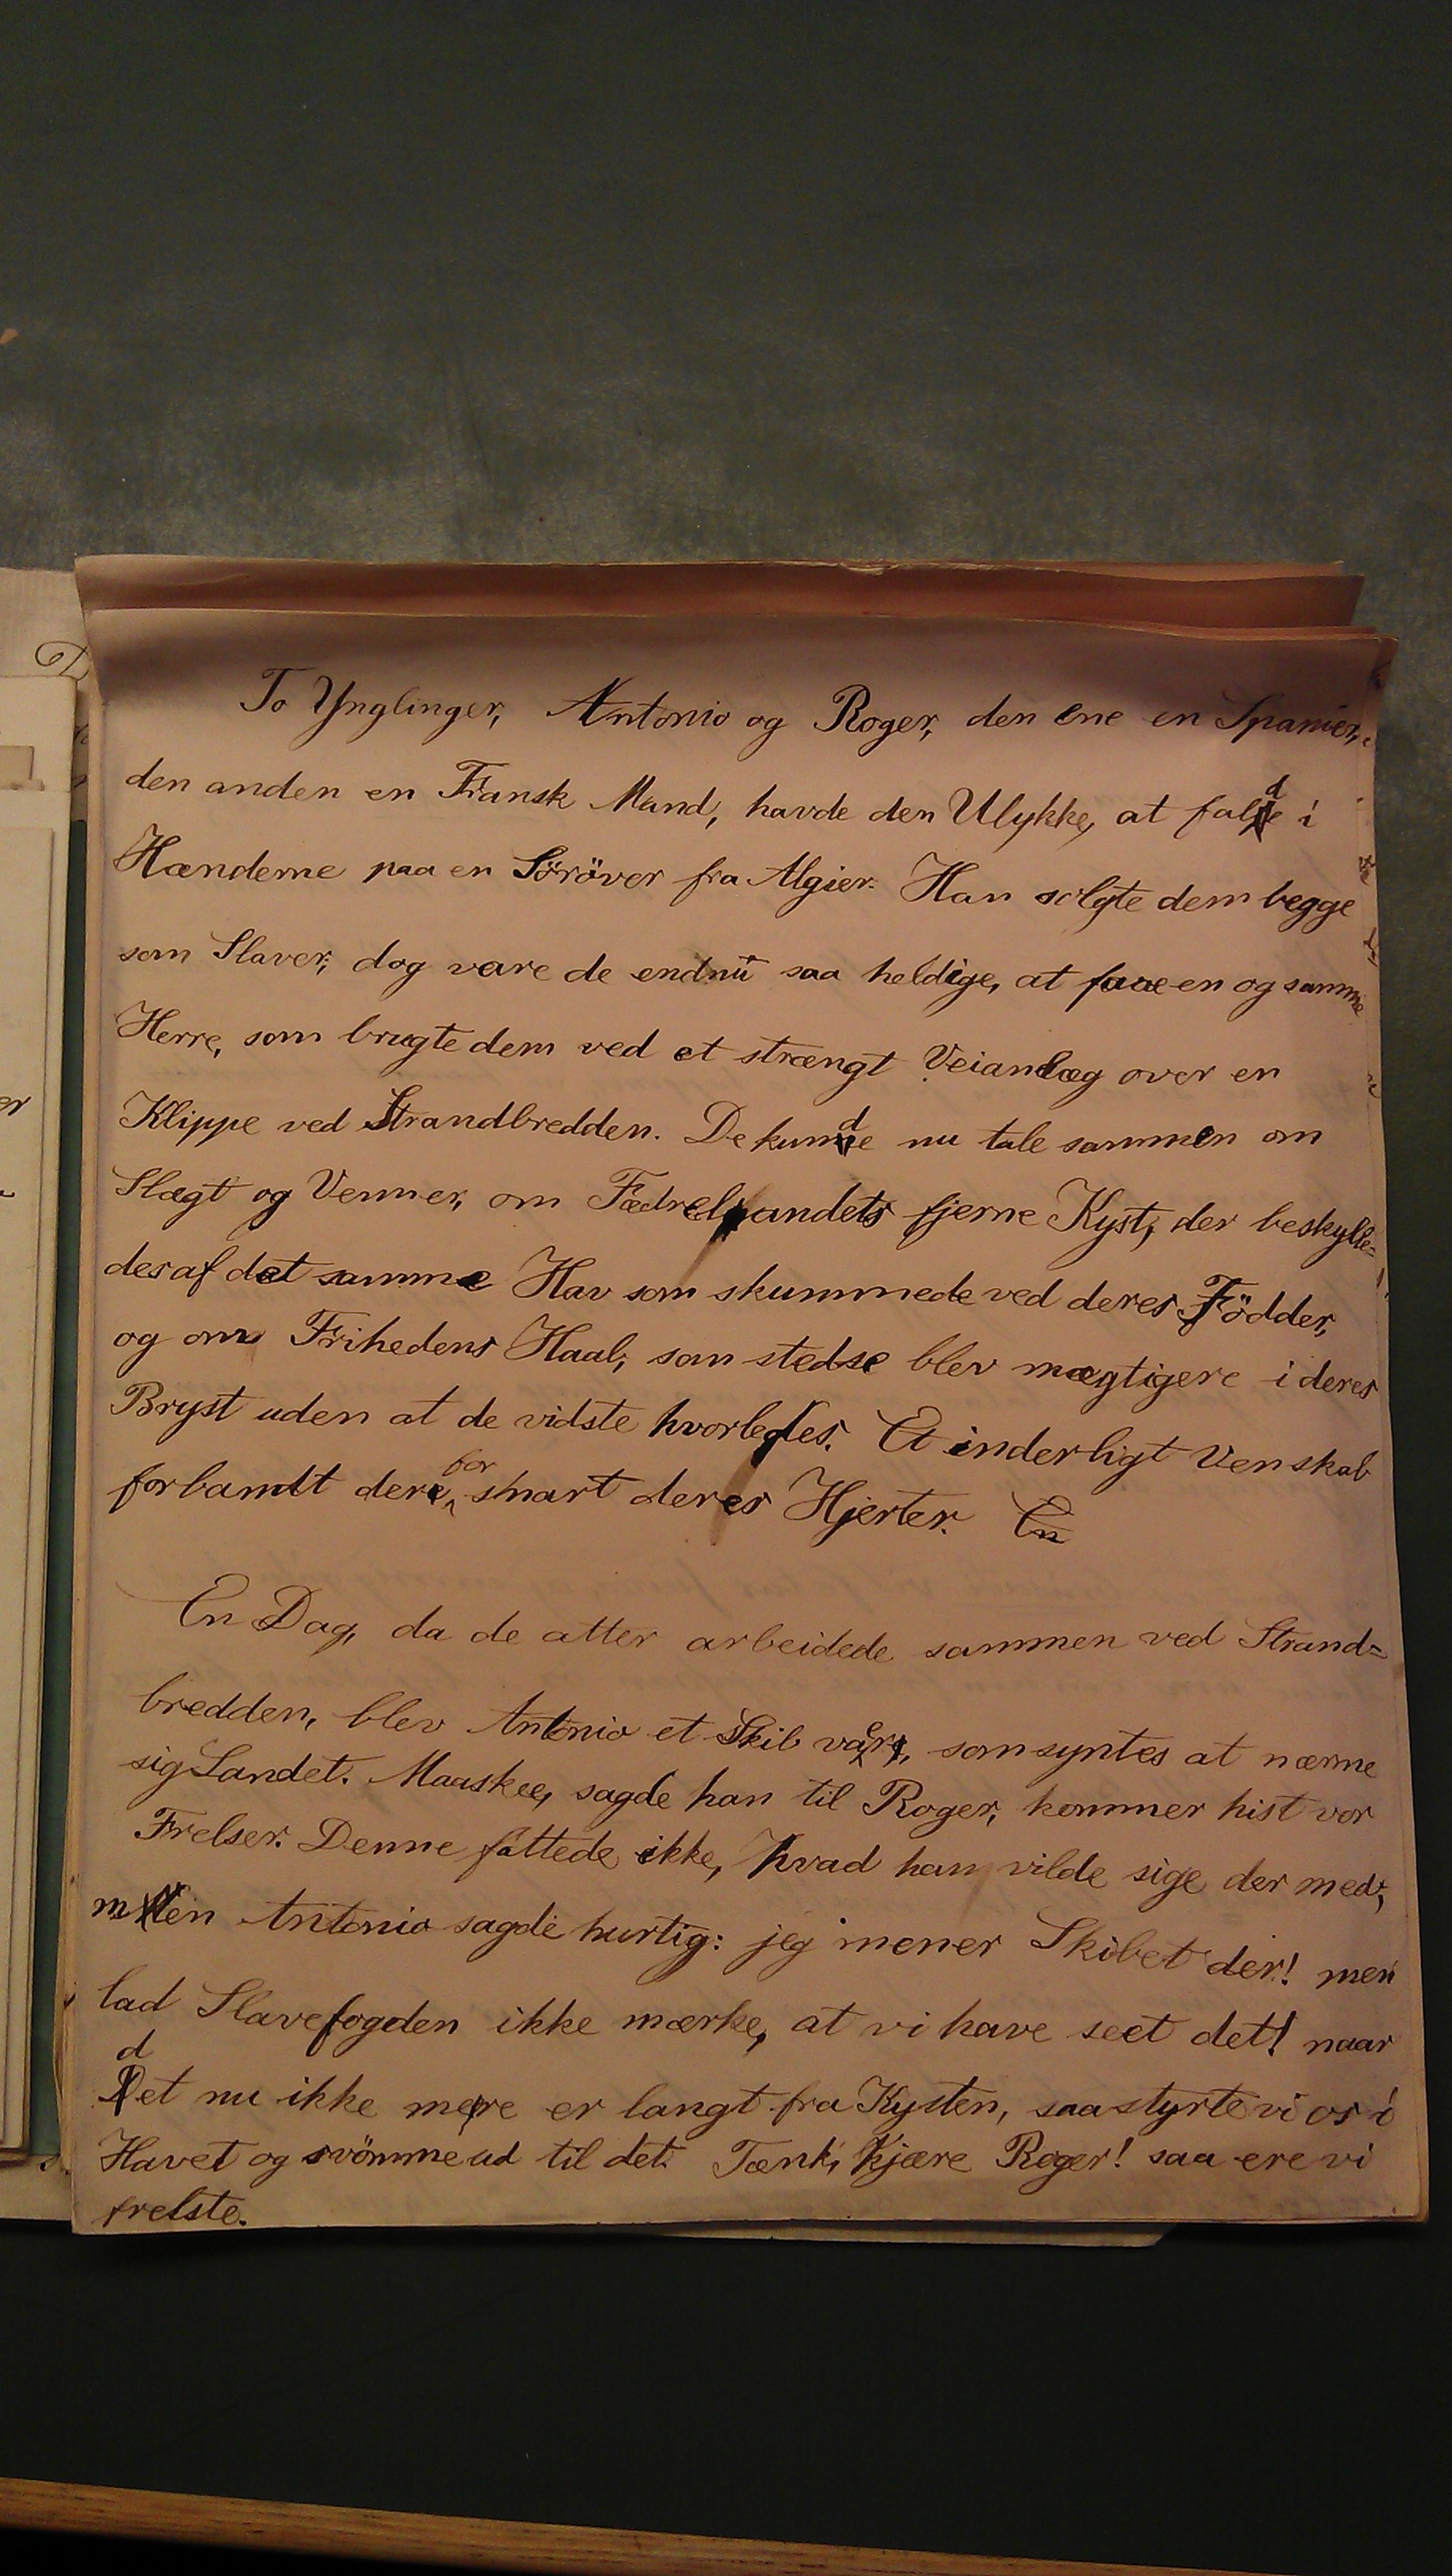 To Ynglinger, Antonio og Roger, den ene en Spanier,
den anden en Fransk Mand, havde den Ulykke, at falde i
Hænderne paa en Söröver fra Algier. Han solgte dem begge
som Slaver; dog vare de endnu saa heldige, at faae en og samme
Herre, som brugte dem ved et strængt Veianlæg over en
Klippe ved Strandbredden. De kunde nu tale sammen om
Slægt og Venner, om Fædrelandets fjerne Kyst, der beskylle=
des af det samme Hav som skummede ved deres Födder,
og om Frihedens Haab, som stedse blev mægtigere i deres
Bryst uden at de vidste hvorledes. Et inderligt Venskab
forbandt derfor snart deres Hjerter. En
En Dag, da de atter arbeidede sammen ved Strand=
bredden, blev Antonio et Skib vaer, som syntes at nærme
sig Landet. Maaskee, sagde han til Roger, kommer hist vor
Frelser. Denne fattede ikke, hvad han vilde sige der med;
men Antonio sagde hurtig: jeg mener Skibet der! men
lad Slavefogden ikke mærke, at vi have seet det! naar
det nu ikke mere er langt fra Kysten, saa styrte vi os i
Havet og svömme ud til det. Tænk, kjære Roger! saa ere vi
frelste.